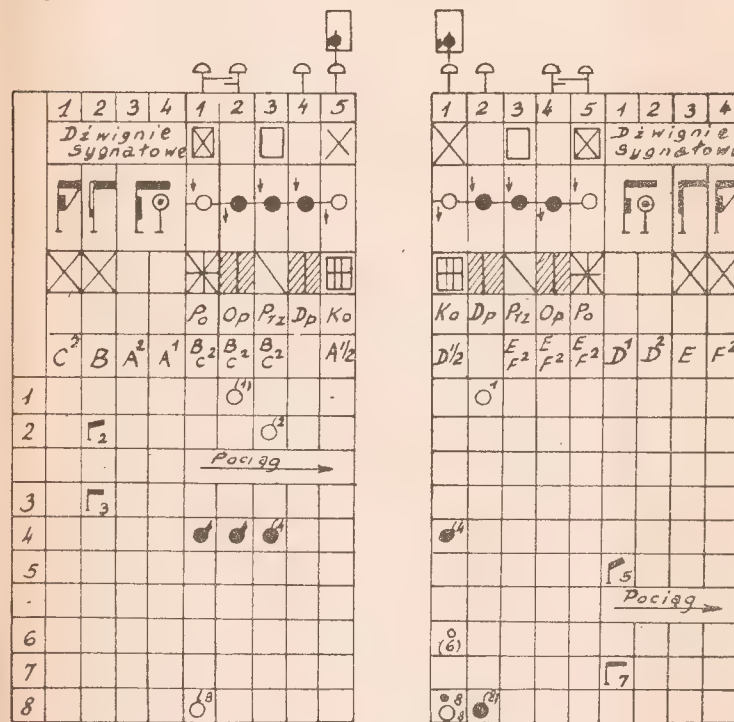 1 2 3 4 1 2 3 4 5
Dźwignie
Sygnałowe
Po Op Prz Dp Ko
C² B A² A¹ B C² B C² B C² A½
1 (1)
2 2 2
Pociąg
3 3
4 4 4 4
5
6
7
8 8
1 2 3 4 5 1 2 3 4
Dźwignie
Sygnałowe
Ko Dp Prz Op Po
D½ E F² E F² E F² D¹ D² E F²
1
4
5
Pociąg
(6)
7
8 8